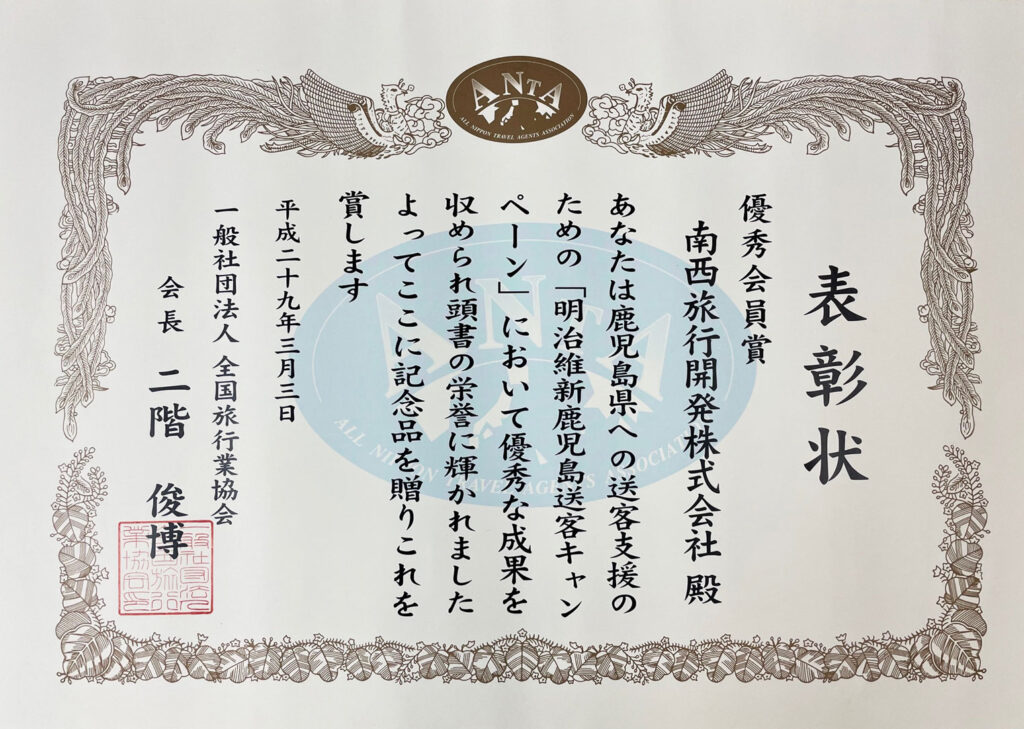 ANTA
ALL NIPPON TRAVEL AGENTS ASSOCIATION
表彰状
優秀会員賞
南西旅行開発株式会社 殿
あなたは鹿児島県への送客支援の
ための「明治維新鹿児島送客キャン
ペーン」において優秀な成果を
収められ頭書の栄誉に輝かれました
よってここに記念品を贈りこれを
賞します
平成二十九年三月三日
一般社団法人 全国旅行業協会
会長 二階 俊博
ANTA
ALL NIPPON TRAVEL AGENTS ASSOCIATION